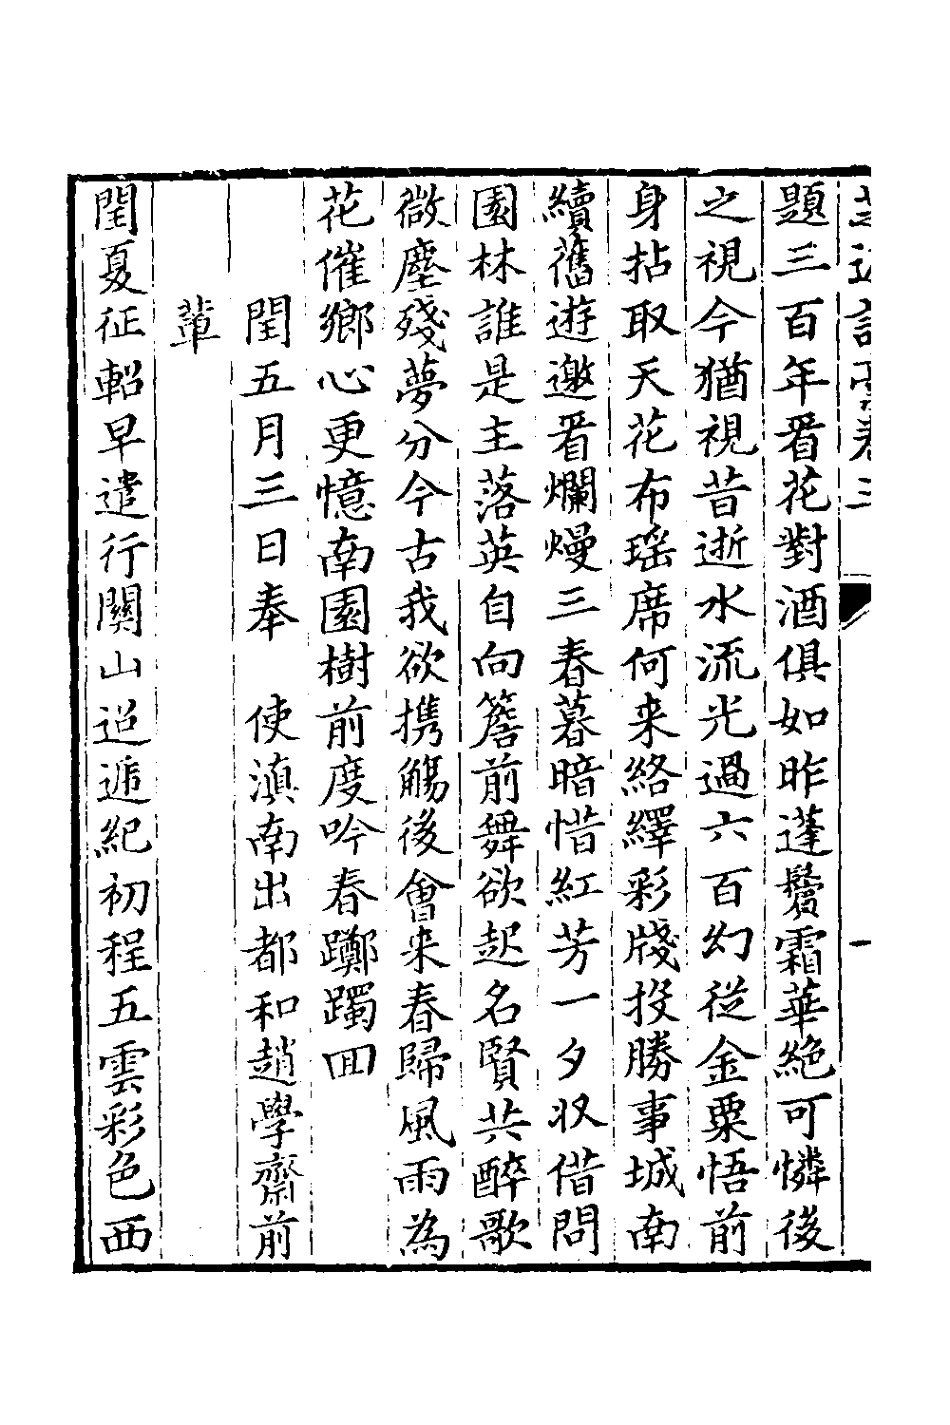 題三百年看花對酒俱如昨蓬鬢霜華絶可憐後
之視今猶視昔逝水流光過六百幻從金粟悟前
身拈取天花布瑶席何来絡繹彩牋投勝事城南
續舊遊邀看爛熳三春暮暗惜紅芳一夕収借問
園林誰是主落英自向簷前舞欲起名賢共醉歌
微塵殘夢分今古我欲携觴後會来春歸風雨為
花催鄉心更憶南園樹前度吟春躑躅回
閏五月三日奉　使滇南出都和趙學齋前
輩
閏夏征軺早遣行關山迢遞紀初程五雲彩色西